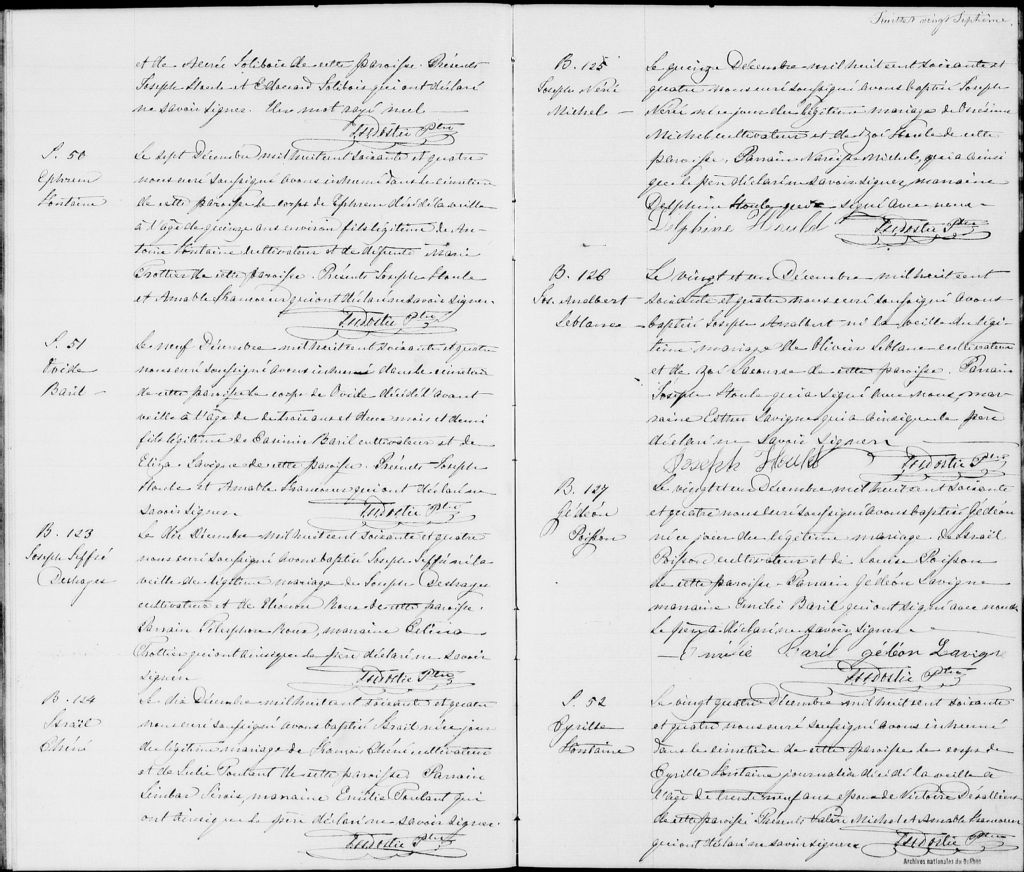 et de Merée Solibois de cette paroisse. Présents
Joseph Houle et Edouard Solibois qui ont déclaré
ne savoir signer. Un mot rayé nul
Ptre
S. 50
Ephrem
Fontaine
Le sept Décembre mil huit cent soixante et quatre
nous curé soussigné avons inhumé dans le cimetière
de cette paroisse le corps de Ephrem décédé la veille
à l'âge de quinze ans environ fils légitime de An-
toine Fontaine cultivateur et de défunte Marie
Trottier de cette paroisse. Présents Joseph Houle
et Amable Francoeur qui ont déclaré ne savoir signer.
Ptre
S. 51
Ovide
Baril
Le neuf Décembre mil huit cent soixante et quatre
nous curé soussigné avons inhumé dans le cimetière
de cette paroisse le corps de Ovide décédé l'avant
veille à l'âge de trois ans et deux mois et demi
fils légitime de Casimir Baril cultivateur et de
Eliza Lavigne de cette paroisse. Présents Joseph
Houle et Amable Francoeur qui ont déclaré ne
savoir signer
Ptre
B. 123
Joseph Jeffré
Deshayes
Le dix Décembre mil huit cent soixante et quatre
nous curé soussigné avons baptisé Joseph Jeffré né la
veille du légitime mariage de Joseph Deshayes
cultivateur et de Eléonore Roux de cette paroisse.
Parrain Télesphore Roux, marraine Célina
Trottier qui ont ainsi que le père déclaré ne savoir
signer
Ptre
B. 124
Israël
Chéné
Le dix Décembre mil huit cent soixante et quatre
nous curé soussigné avons baptisé Israël né ce jour
du légitime mariage de François Chéné cultivateur
et de Julie Toutant de cette paroisse. Parrain
Sirois, marraine Emilie Toutant qui
ont ainsi que le père déclaré ne savoir signer.
Ptre
Feuillet vingt septième.
B. 125
Joseph Néré
Michel
Le quinze Décembre mil huit cent soixante et
quatre nous curé soussigné avons baptisé Joseph
Néré né ce jour du légitime mariage de Onésime
Michel cultivateur et de Zoé Houle de cette
paroisse. Parrain Narcisse Michel, qui a ainsi
que le père déclaré ne savoir signer, marraine
Delphine Houle qui a signé avec nous.
Delphine Hould
Ptre
B. 126
Jos. Analbert
Leblanc
Le vingt et un Décembre mil huit cent
soixante et quatre nous curé soussigné avons
baptisé Joseph Analbert né la veille du légi-
time mariage de Olivier Leblanc cultivateur
et de Zoé Lacourse de cette paroisse. Parrain
Joseph Houle qui a signé avec nous, mar-
raine Esther Lavigne qui a ainsi que le père
déclaré ne savoir signer
Joseph Hould
Ptre
B. 127
Gédéon
Poisson
Le vingt et un Décembre mil huit cent soixante
et quatre nous curé soussigné avons baptisé Gédéon
né ce jour du légitime mariage de Israël
Poisson cultivateur et de Louise Poisson
de cette paroisse. Parrain Gédéon Lavigne
marraine Emilie Baril qui ont signé avec nous.
Le père a déclaré ne savoir signer.
Emélie Baril gédéon Lavigne
Ptre
S. 52
Cyrille
Fontaine
Le vingt quatre Décembre mil huit cent soixante
et quatre nous curé soussigné avons inhumé
dans le cimetière de cette paroisse le corps de
Cyrille Fontaine journalier décédé la veille à
l'âge de trente neuf ans époux de Victoire Désalliers
de cette paroisse Présents Michel et Amable Francoeur
qui ont déclaré ne savoir signer
Ptre
Archives nationales du Québec